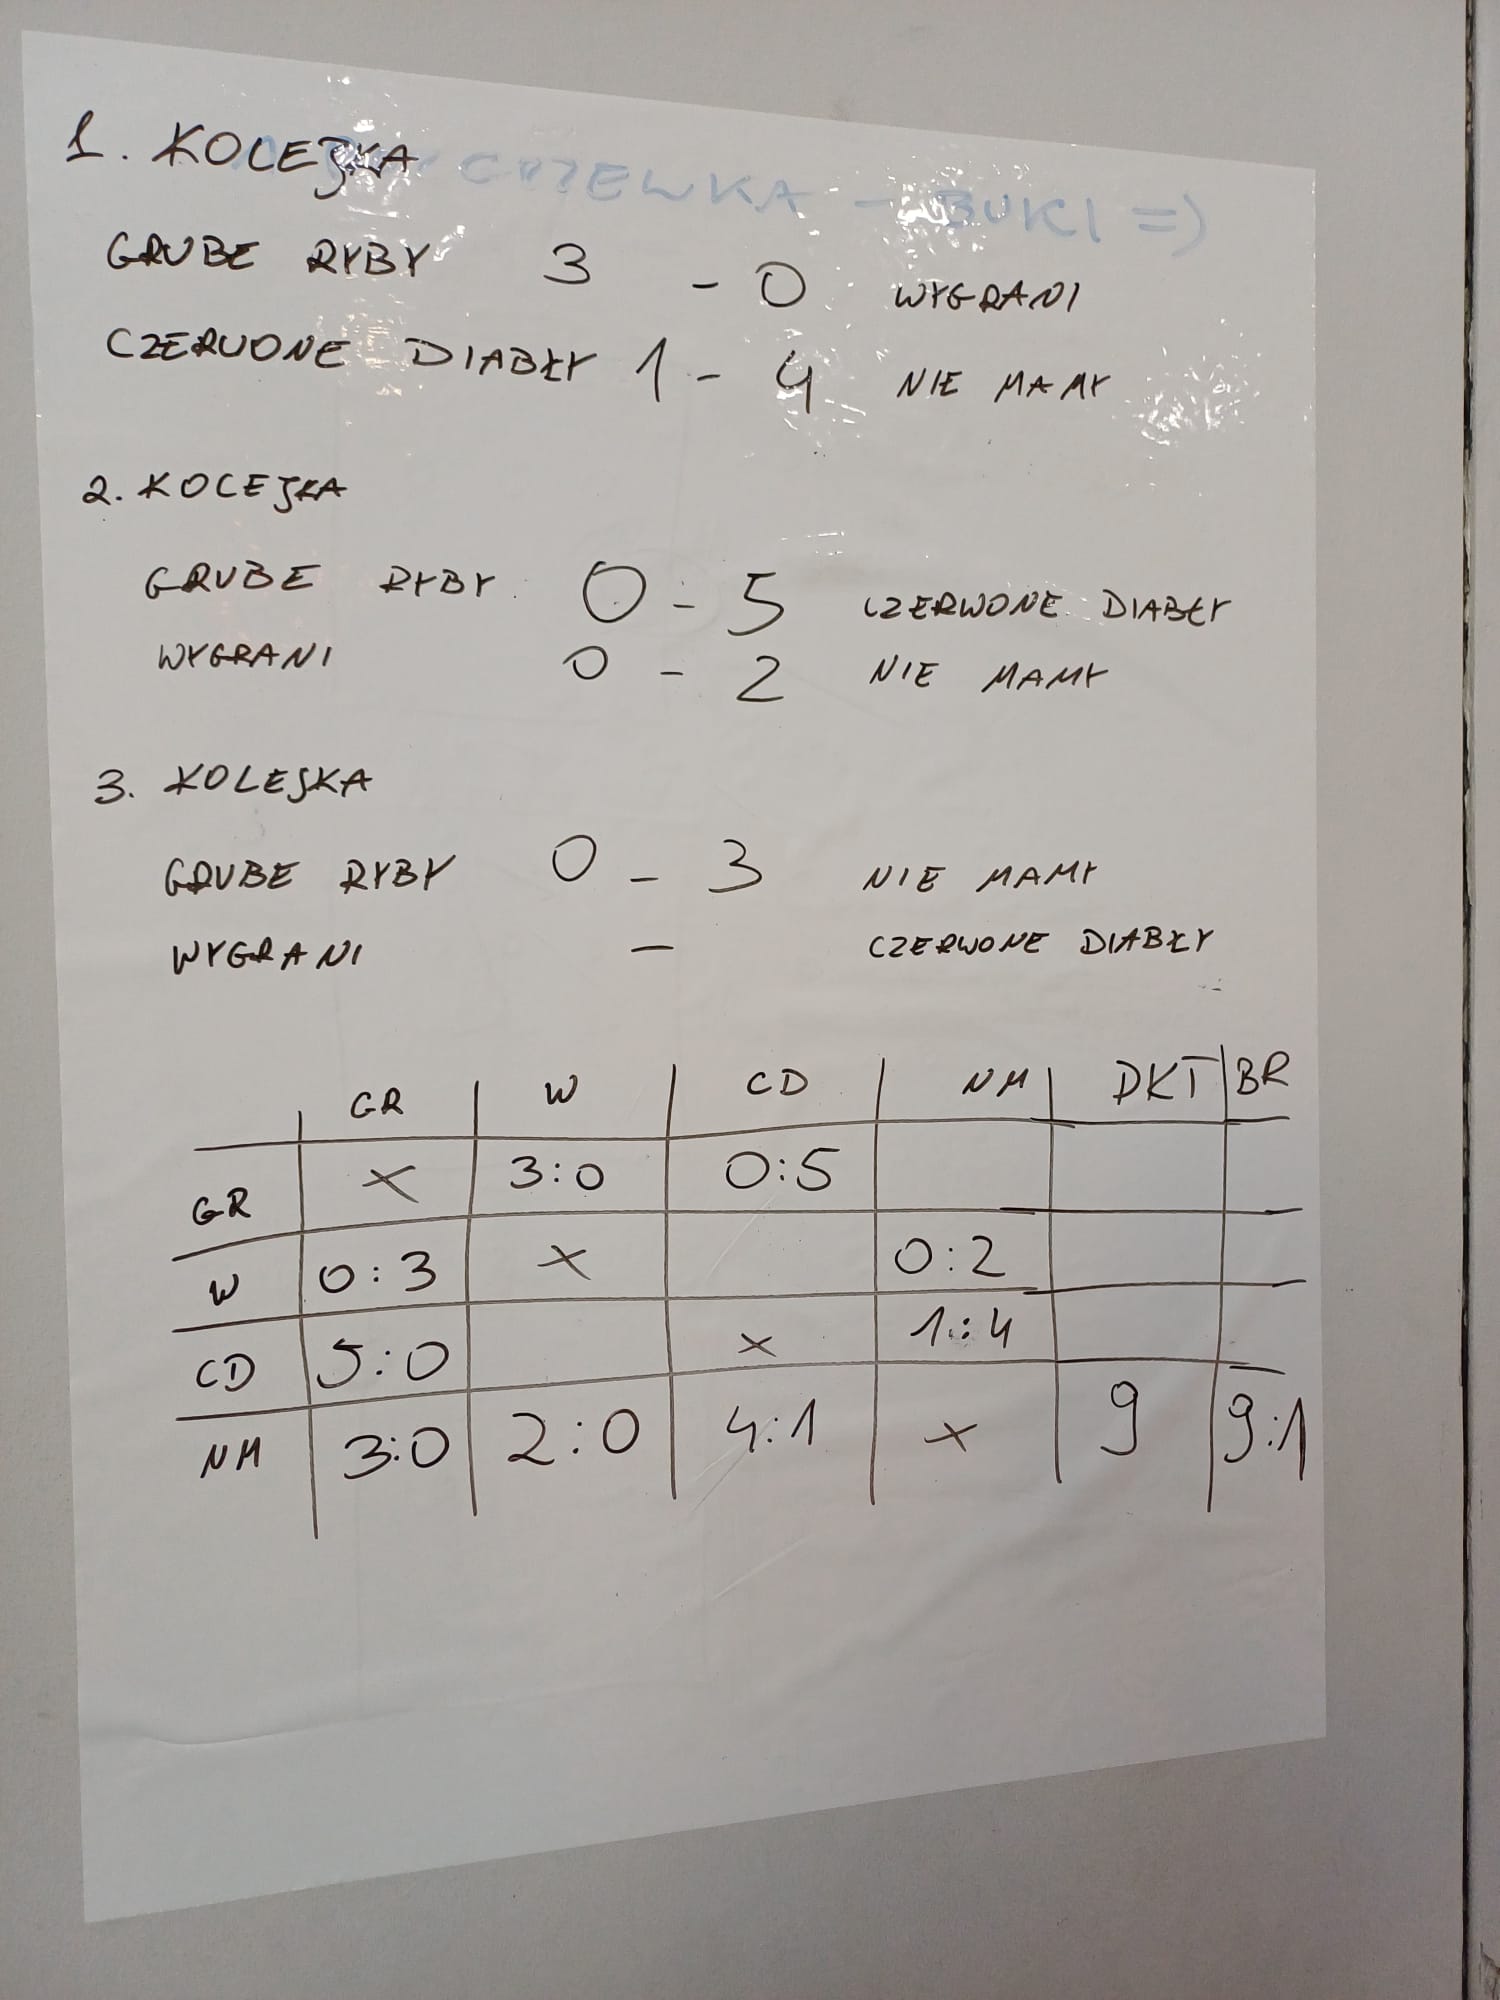 1. KOLEJKA
GRUBE RYBY 3 - 0 WYGRANI
CZERWONE DIABŁY 1 - 4 NIE MAMY
2. KOLEJKA
GRUBE RYBY 0 - 5 CZERWONE DIABŁY
WYGRANI 0 - 2 NIE MAMY
3. KOLEJKA
GRUBE RYBY 0 - 3 NIE MAMY
WYGRANI - CZERWONE DIABŁY
GR W CD NM PKT BR
GR X 3:0 0:5
W 0:3 X 0:2
CD 5:0 X 1:4
NM 3:0 2:0 4:1 X 9 9:1